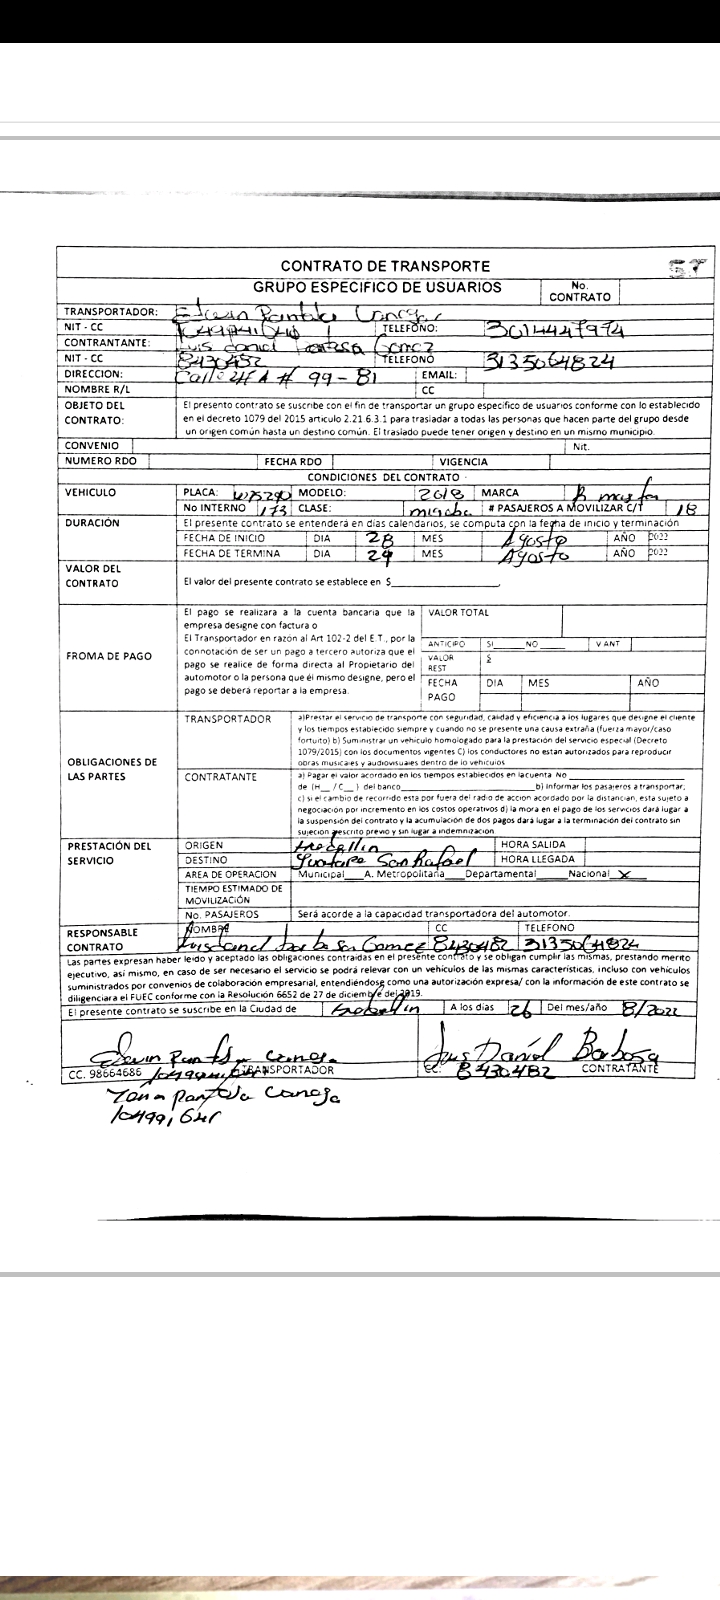 CONTRATO DE TRANSPORTE
57
GRUPO ESPECIFICO DE USUARIOS No. CONTRATO
TRANSPORTADOR:
NIT - CC TELEFONO: 3014447974
CONTRANTANTE: Luis Gomez
NIT - CC 8430482 TELEFONO 3135064824
DIRECCION: Calle # 99-81 EMAIL:
NOMBRE R/L CC
OBJETO DEL CONTRATO: El presento contrato se suscribe con el fin de transportar un grupo especifico de usuarios conforme con lo establecido
en el decreto 1079 del 2015 articulo 2.21.6.3.1 para trasladar a todas las personas que hacen parte del grupo desde
un origen común hasta un destino común. El traslado puede tener origen y destino en un mismo municipio.
CONVENIO Nit.
NUMERO RDO FECHA RDO VIGENCIA
CONDICIONES DEL CONTRATO
VEHICULO PLACA: MODELO: 2018 MARCA
No INTERNO 173 CLASE: # PASAJEROS A MOVILIZAR C/T 18
DURACIÓN El presente contrato se entenderá en días calendarios, se computa con la fecha de inicio y terminación
FECHA DE INICIO DIA 28 MES Agosto AÑO 2022
FECHA DE TERMINA DIA 29 MES Agosto AÑO 2022
VALOR DEL CONTRATO El valor del presente contrato se establece en $
FROMA DE PAGO
El pago se realizara a la cuenta bancaria que la
empresa designe con factura o
El Transportador en razón al Art 102-2 del E.T., por la
connotación de ser un pago a tercero autoriza que el
pago se realice de forma directa al Propietario del
automotor o la persona que él mismo designe, pero el
pago se deberá reportar a la empresa.
VALOR TOTAL
ANTICIPO SI NO V ANT
VALOR REST $
FECHA PAGO DIA MES AÑO
OBLIGACIONES DE LAS PARTES
TRANSPORTADOR a)Prestar el servicio de transporte con seguridad, calidad y eficiencia a los lugares que designe el cliente
y los tiempos establecido siempre y cuando no se presente una causa extraña (fuerza mayor/caso
fortuito) b) Suministrar un vehículo homologado para la prestación del servicio especial (Decreto
1079/2015) con los documentos vigentes C) los conductores no estan autorizados para reproducir
obras musicales y audiovisuales dentro de lo vehículos
CONTRATANTE a) Pagar el valor acordado en los tiempos establecidos en la cuenta No
de (H__ / C__ ) del banco b) Informar los pasajeros a transportar;
c) si el cambio de recorrido esta por fuera del radio de accion acordado por la distancian, esta sujeto a
negociación por incremento en los costos operativos d) la mora en el pago de los servicios dará lugar a
la suspensión del contrato y la acumulación de dos pagos dará lugar a la terminación del contrato sin
sujecion prescrito previo y sin lugar a indemnizacion
PRESTACIÓN DEL SERVICIO
ORIGEN Medellin HORA SALIDA
DESTINO San Rafael HORA LLEGADA
AREA DE OPERACION Municipal A. Metropolitana Departamental Nacional X
TIEMPO ESTIMADO DE MOVILIZACIÓN
No. PASAJEROS Será acorde a la capacidad transportadora del automotor.
RESPONSABLE CONTRATO NOMBRE CC TELEFONO
Gomez 8430482 3135064824
Las partes expresan haber leido y aceptado las obligaciones contraidas en el presente contrato y se obligan cumplir las mismas, prestando merito
ejecutivo, así mismo, en caso de ser necesario el servicio se podrá relevar con un vehículos de las mismas características, incluso con vehículos
suministrados por convenios de colaboración empresarial, entendiéndose como una autorización expresa/ con la información de este contrato se
diligenciara el FUEC conforme con la Resolución 6652 de 27 de diciembre del 2019.
El presente contrato se suscribe en la Ciudad de Medellin A los días 26 Del mes/año 8/2022
Luis Daniel Barbosa
CC. 98664686 TRANSPORTADOR CC. 8430482 CONTRATANTE